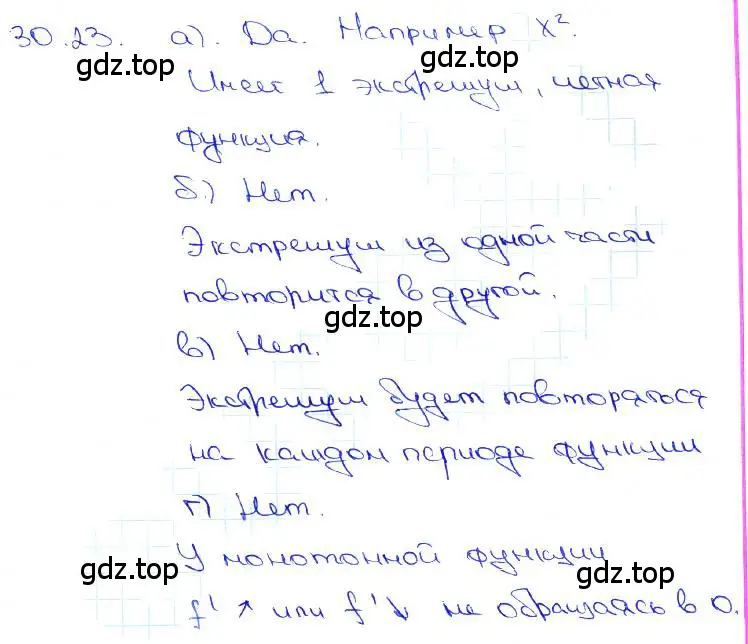 30.23. а). Да. Например x².
gdz.top gdz.top
Имеет 1 экстремум, четная
функция.
б.) Нет.
Экстремум из одной части
повторится в другой.
gdz.top
в) Нет.
Экстремум будет повторяться
на каждом периоде функции
г) Нет.
У монотонной функции
gdz.top gdz.top
f' ↗ или f' ↘ не обращаясь в 0.